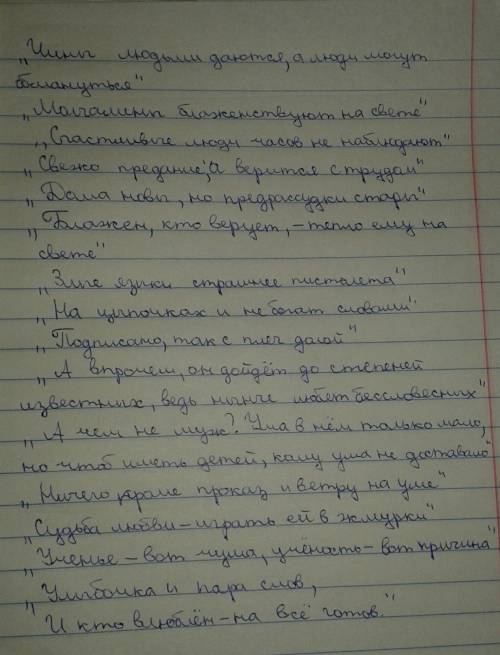 „Чины людьми даются, а люди могут
обмануться"
„Молчалины блаженствуют на свете"
„Счастливые люди часов не наблюдают"
„Свежо предание, а верится с трудом"
„Дома новы, но предрассудки стары"
„Блажен, кто верует, – тепло ему на
свете"
„Злые языки страшнее пистолета"
„На цыпочках и не богат словами"
„Подписано, так с плеч долой"
„А впрочем, он дойдёт до степеней
известных, ведь нынче любят бессловесных"
„А чем не муж? Ума в нём только мало,
но чтоб иметь детей, кому ума не доставало"
„Ничего, кроме проказ и ветру на уме"
„Судьба любви – играть ей в жмурки"
„Ученье – вот чума, учёность – вот причина"
„Улыбочка и пара слов,
И кто влюблён – на всё готов."